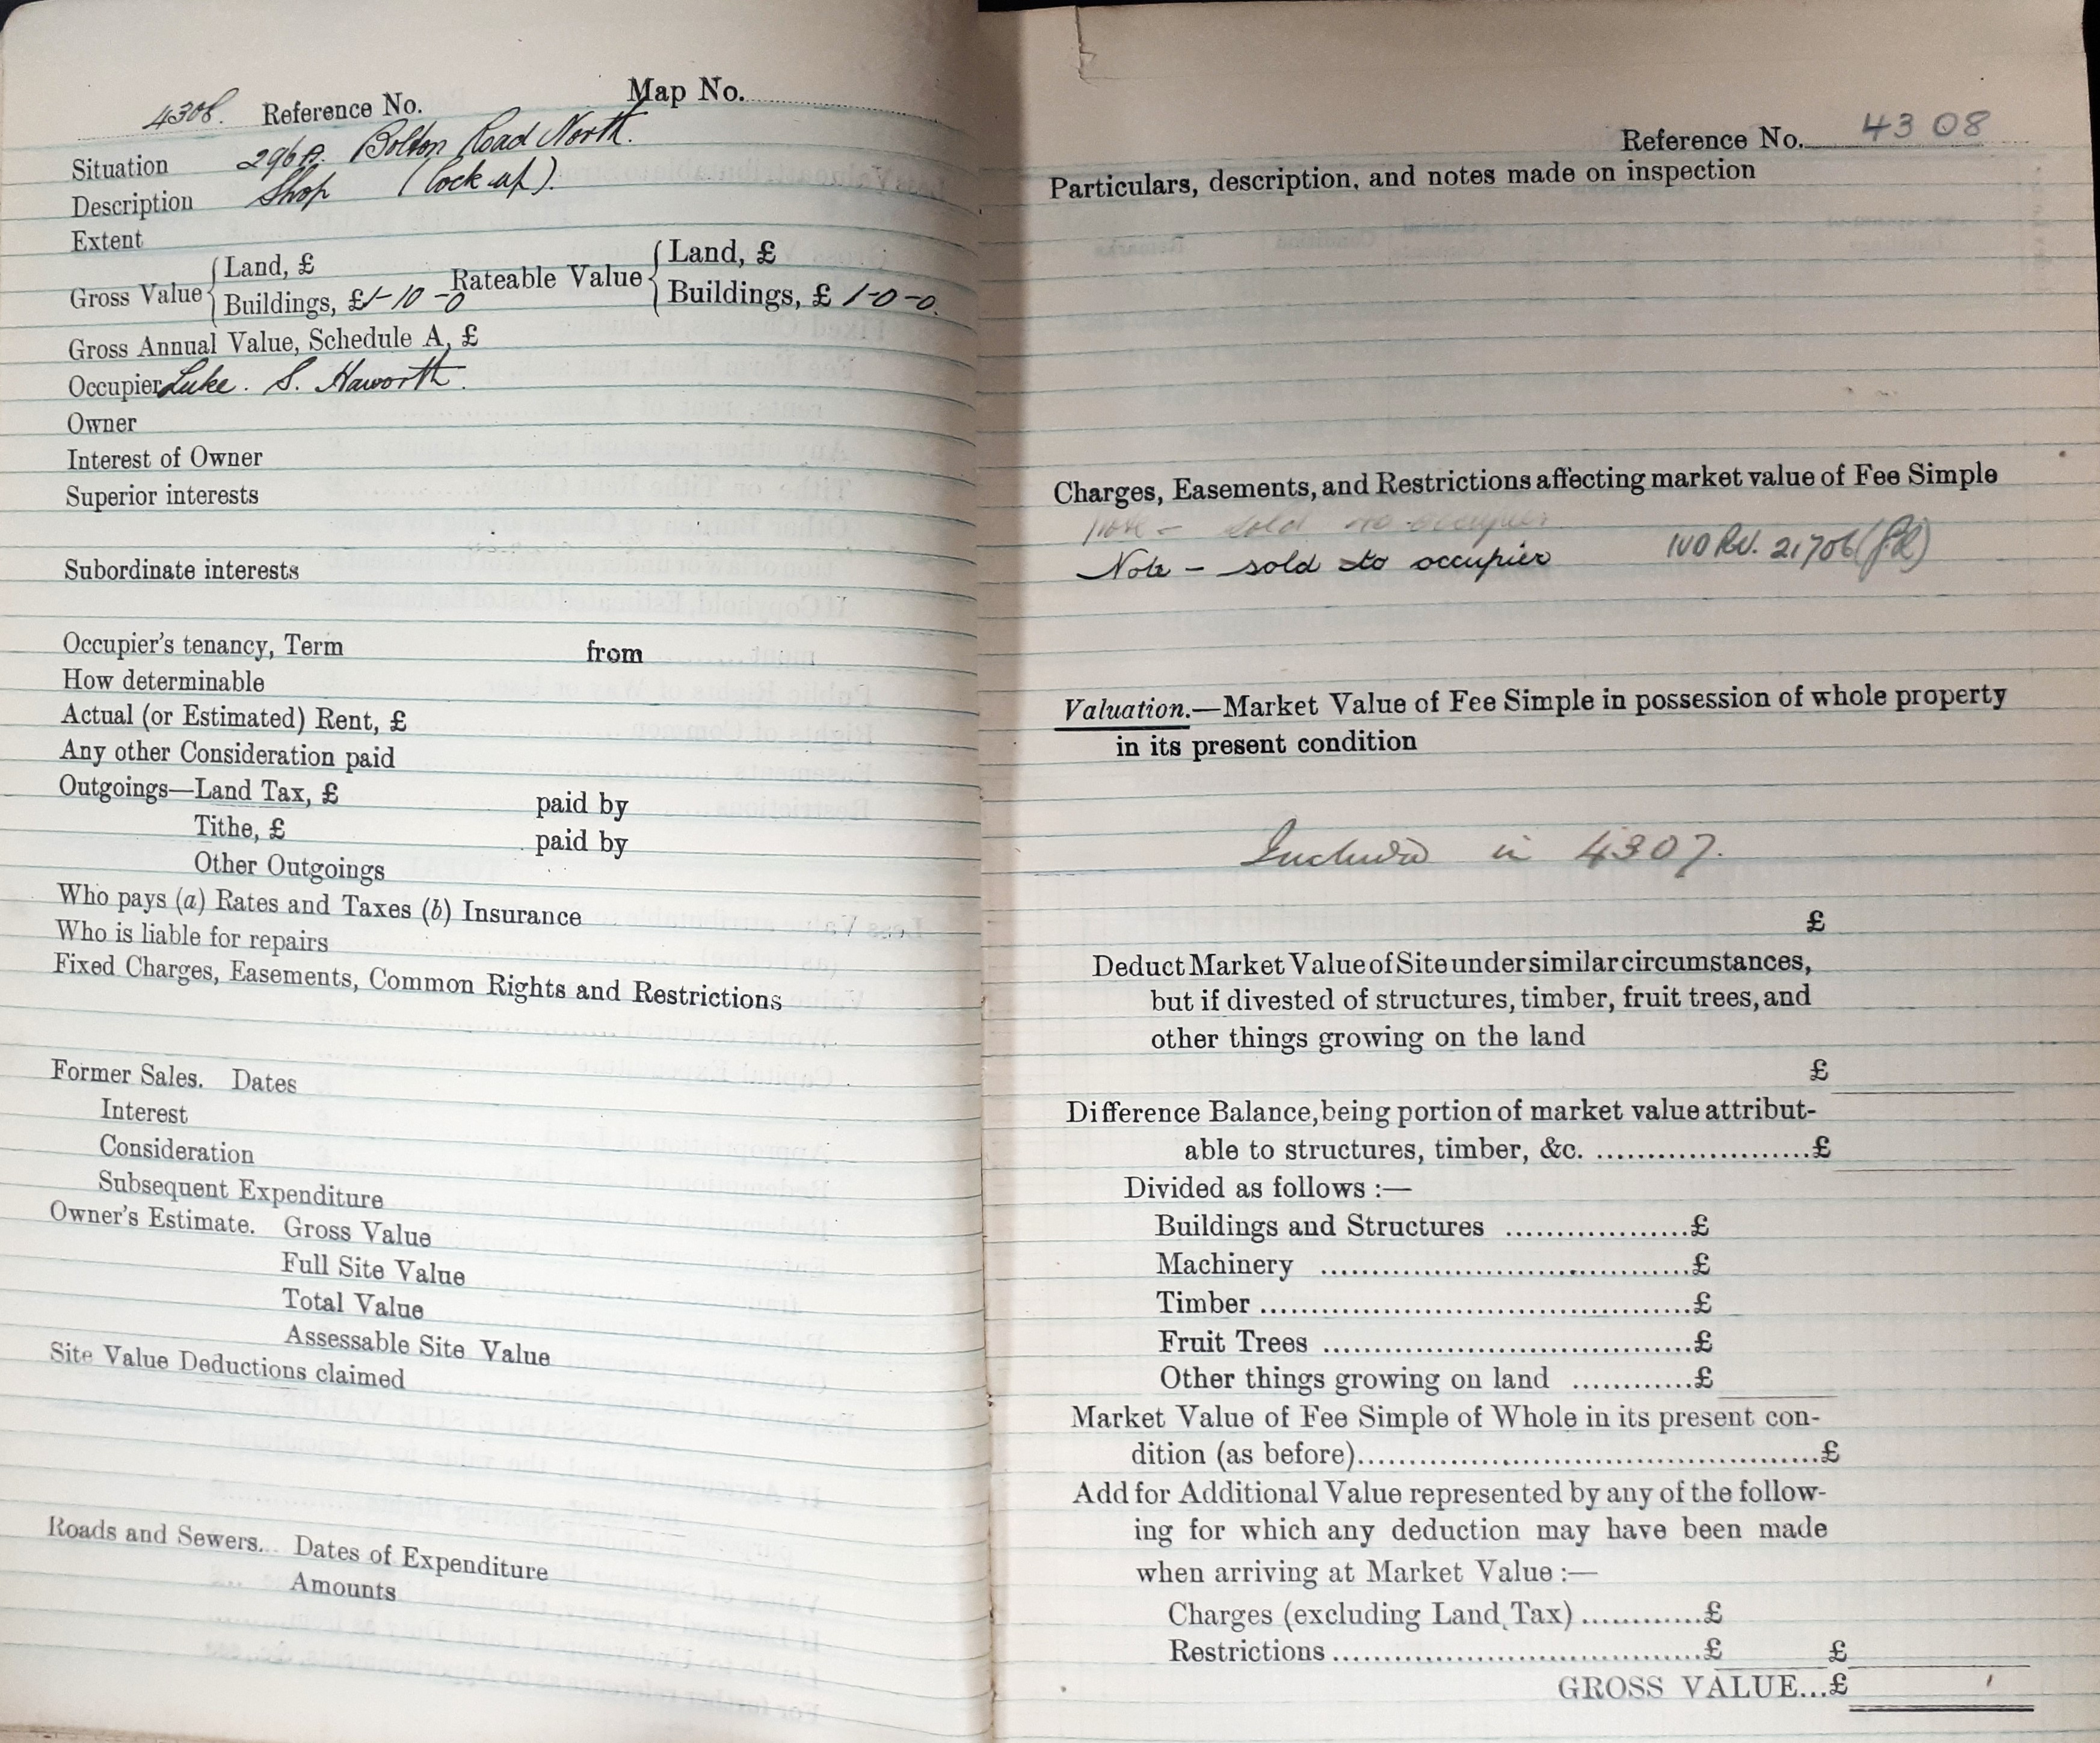 4308. Reference No. Map No.
Situation 296A. Bolton Road North.
Description Shop (lock up).
Extent
Gross Value { Land, £ Rateable Value { Land, £
Buildings, £1-10-0 Buildings, £ 1-0-0.
Gross Annual Value, Schedule A, £
Occupier Luke. S. Haworth.
Owner
Interest of Owner
Superior interests
Subordinate interests
Occupier's tenancy, Term from
How determinable
Actual (or Estimated) Rent, £
Any other Consideration paid
Outgoings—Land Tax, £ paid by
Tithe, £ paid by
Other Outgoings
Who pays (a) Rates and Taxes (b) Insurance
Who is liable for repairs
Fixed Charges, Easements, Common Rights and Restrictions
Former Sales. Dates
Interest
Consideration
Subsequent Expenditure
Owner's Estimate. Gross Value
Full Site Value
Total Value
Assessable Site Value
Site Value Deductions claimed
Roads and Sewers. Dates of Expenditure
Amounts
Reference No. 4308
Particulars, description, and notes made on inspection
Charges, Easements, and Restrictions affecting market value of Fee Simple
Note - sold to occupier
Note - sold to occupier 21706
Valuation.—Market Value of Fee Simple in possession of whole property
in its present condition
Included in 4307.
£
Deduct Market Value of Site under similar circumstances,
but if divested of structures, timber, fruit trees, and
other things growing on the land
£
Difference Balance, being portion of market value attribut-
able to structures, timber, &c. ......................£
Divided as follows :—
Buildings and Structures ...................£
Machinery ......................................£
Timber ............................................£
Fruit Trees ......................................£
Other things growing on land ............£
Market Value of Fee Simple of Whole in its present con-
dition (as before)................................................£
Add for Additional Value represented by any of the follow-
ing for which any deduction may have been made
when arriving at Market Value :—
Charges (excluding Land Tax) ............£
Restrictions .....................................£ £
GROSS VALUE...£